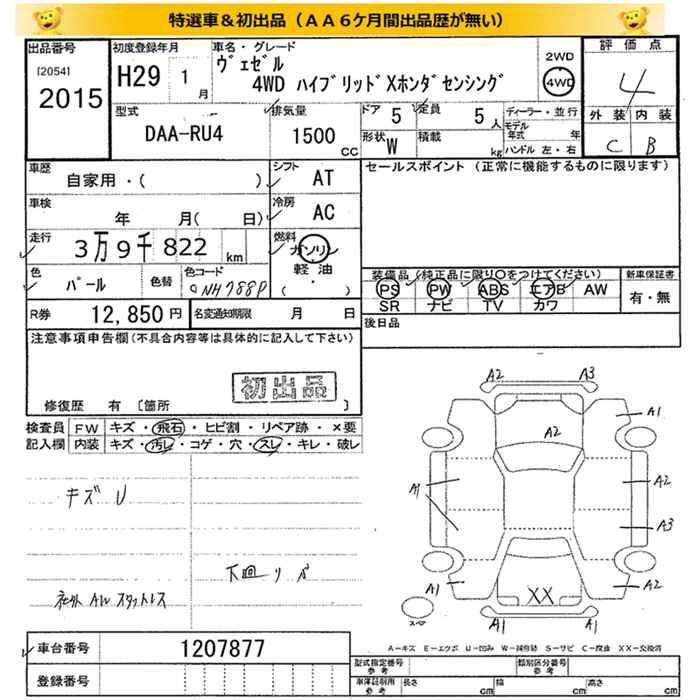 特選車＆初出品（ＡＡ６ケ月間出品歴が無い）
出品番号
[2054]
2015
初度登録年月
H29 1 月
車名・グレード
ヴェゼル
4WD ハイブリッドXホンダセンシング
2WD
4WD
評価点
4
外装 内装
C B
型式
DAA-RU4
排気量
1500 CC
ドア 5
定員 5 人
形状 W
積載 kg
ディーラー・並行
モデル年式 年
ハンドル 左・右
車歴
自家用・( )
シフト AT
車検
年 月( 日)
冷房 AC
走行
3万9千822 km
燃料 ガソリン
軽油
( ・ )
色 パール
色替
色コード
NH788P
R券 12,850円
名変通知期限 月 日
セールスポイント（正常に機能するものに限ります）
装備品（純正品に限り〇をつけてください）
PS PW ABS エアB AW
SR ナビ TV カワ
新車保証書
有・無
後日品
注意事項申告欄(不具合内容等は具体的に記入して下さい)
初出品
修復歴 有 〔箇所 〕
検査員記入欄
FW キズ・飛石・ヒビ割・リペア跡・×要
内装 キズ・汚れ・コゲ・穴・スレ・キレ・破レ
キズU
下回りサビ
社外AWスタットレス
A2 A3
A1
A2
A1 A2
A3
A1 A2
XX
A1 A1
スペア
A-キズ E-エクボ U-凹み W-補修跡 S-サビ C-腐食 XX-交換済
車台番号 1207877
登録番号
型式指定番号参考
類別区分番号参考
車庫証明用参考 長さ cm 幅 cm 高さ cm